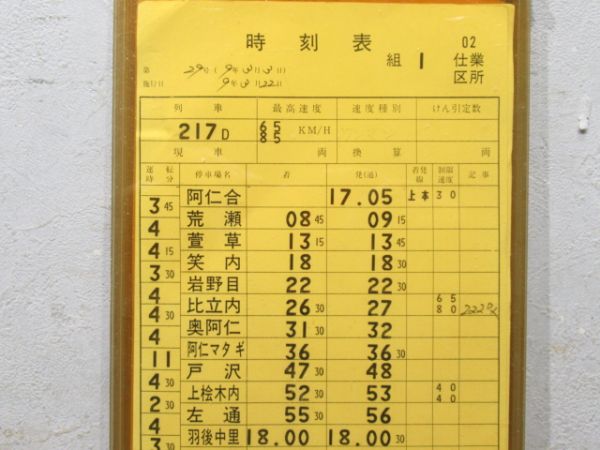 時刻表
02
組 1 仕業
区所
第 29号 (9年3月3日)
施行日 9年3月22日
列車 最高速度 速度種別 けん引定数
217D 65 KM/H
85
現車 両 換算 両
運転時分 停車場名 着 発(通) 着発線 制限速度 記事
阿仁合 17.05 上本 30
3 45
荒瀬 08 45 09 15
4
萱草 13 15 13 45
4 15
笑内 18 18 30
3 30
岩野目 22 22 30
4
比立内 26 30 27 65
80
4
奥阿仁 31 30 32
4
阿仁マタギ 36 36 30
11
戸沢 47 30 48
4 30
上桧木内 52 30 53 40
40
2 30
左通 55 30 56
4
羽後中里 18.00 18.00 30
3 30